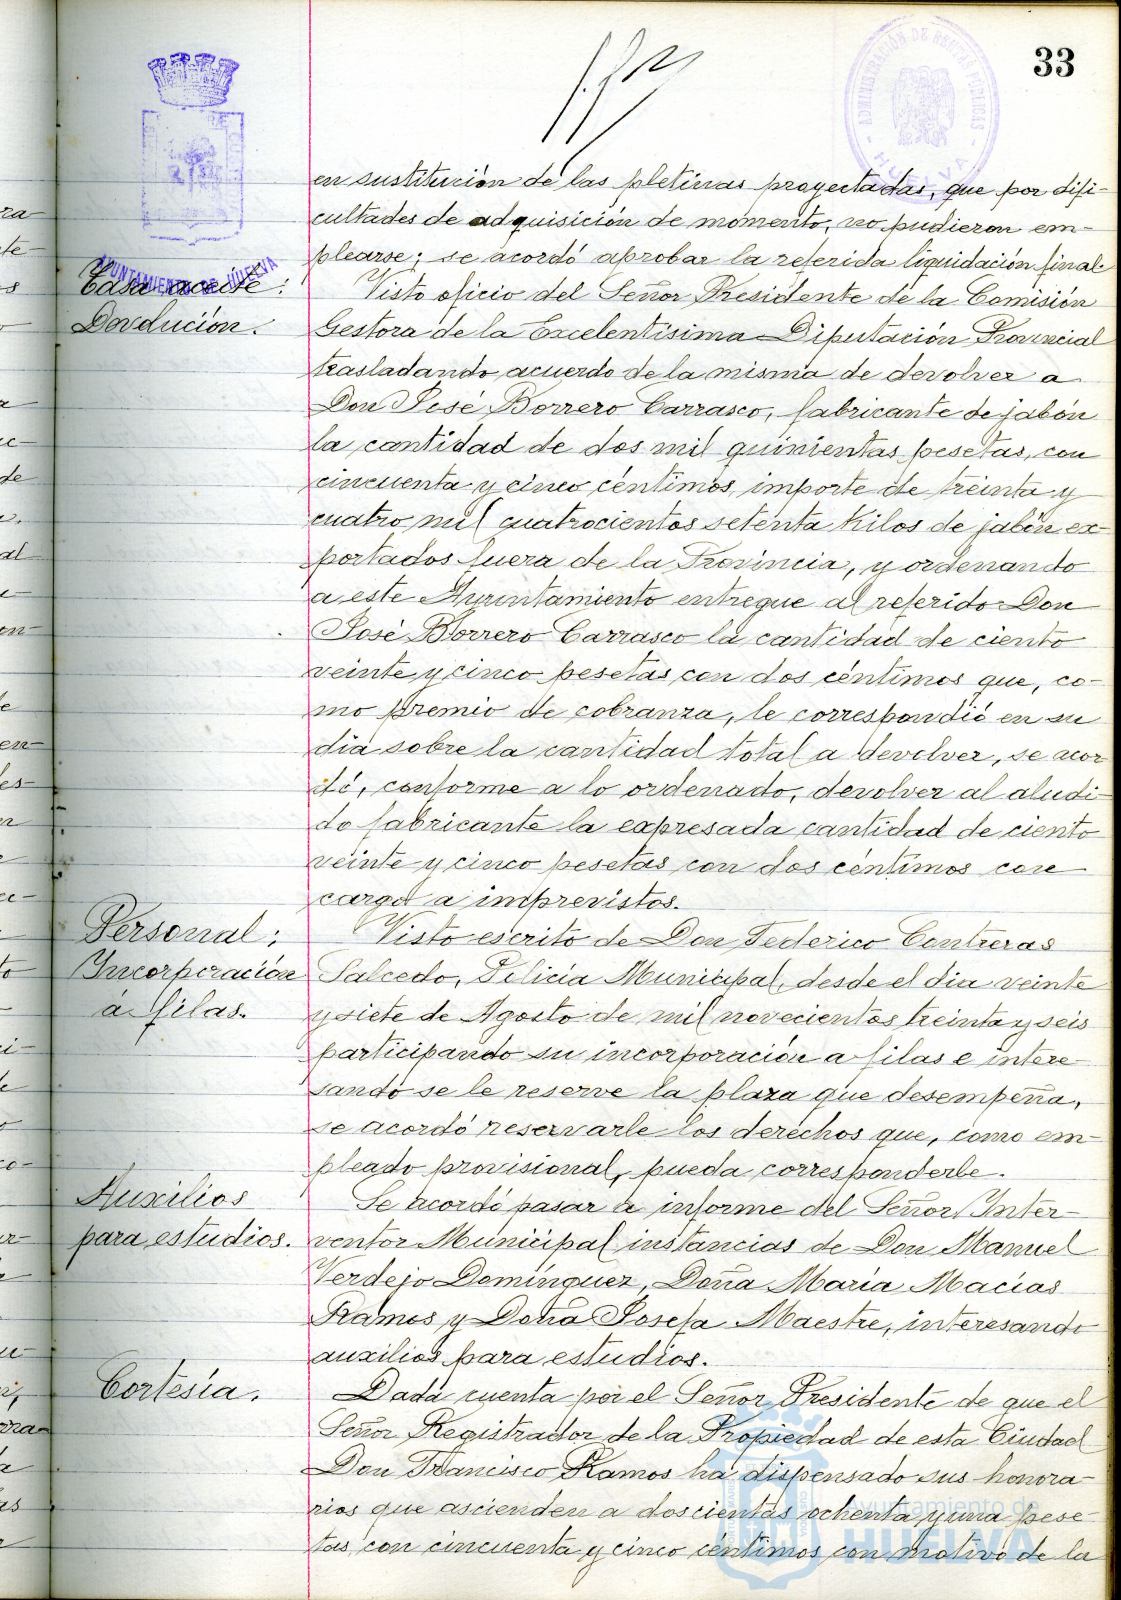 33
ADMINISTRACIÓN DE RENTAS PÚBLICAS
HUELVA
AYUNTAMIENTO DE HUELVA
en sustitución de las pletinas proyectadas, que por difi-
cultades de adquisición de momento, no pudieron em-
plearse; se acordó aprobar la referida liquidación final.
Tasa aceite:
Devolución.
Visto oficio del Señor Presidente de la Comisión
Gestora de la Excelentísima Diputación Provincial
trasladando acuerdo de la misma de devolver a
Don José Borrero Carrasco, fabricante de jabón
la cantidad de dos mil quinientas pesetas, con
cincuenta y cinco céntimos, importe de treinta y
cuatro mil cuatrocientos setenta kilos de jabón ex-
portados fuera de la Provincia, y ordenando
a este Ayuntamiento entregue al referido Don
José Borrero Carrasco la cantidad de ciento
veinte y cinco pesetas con dos céntimos que, co-
mo premio de cobranza, le correspondió en su
día sobre la cantidad total a devolver, se acor-
dó, conforme a lo ordenado, devolver al aludi-
do fabricante la expresada cantidad de ciento
veinte y cinco pesetas con dos céntimos con
cargo a imprevistos.
Personal;
Incorporación
á filas.
Visto escrito de Don Federico Contreras
Salcedo, Policía Municipal, desde el dia veinte
y siete de Agosto de mil novecientos treinta y seis
participando su incorporación a filas e intere-
sando se le reserve la plaza que desempeña,
se acordó reservarle los derechos que, como em-
pleado provisional, pueda corresponderle.
Auxilios
para estudios.
Se acordó pasar a informe del Señor Inter-
ventor Municipal instancias de Don Manuel
Verdejo Domínguez, Doña María Macías
Ramos y Doña Josefa Maestre, interesando
auxilios para estudios.
Cortesía.
Dada cuenta por el Señor Presidente de que el
Señor Registrador de la Propiedad de esta Ciudad
Don Francisco Ramos ha dispensado sus honora-
rios que ascienden a doscientas ochenta y una pese-
tas, con cincuenta y cinco céntimos con motivo de la
Ayuntamiento de
HUELVA